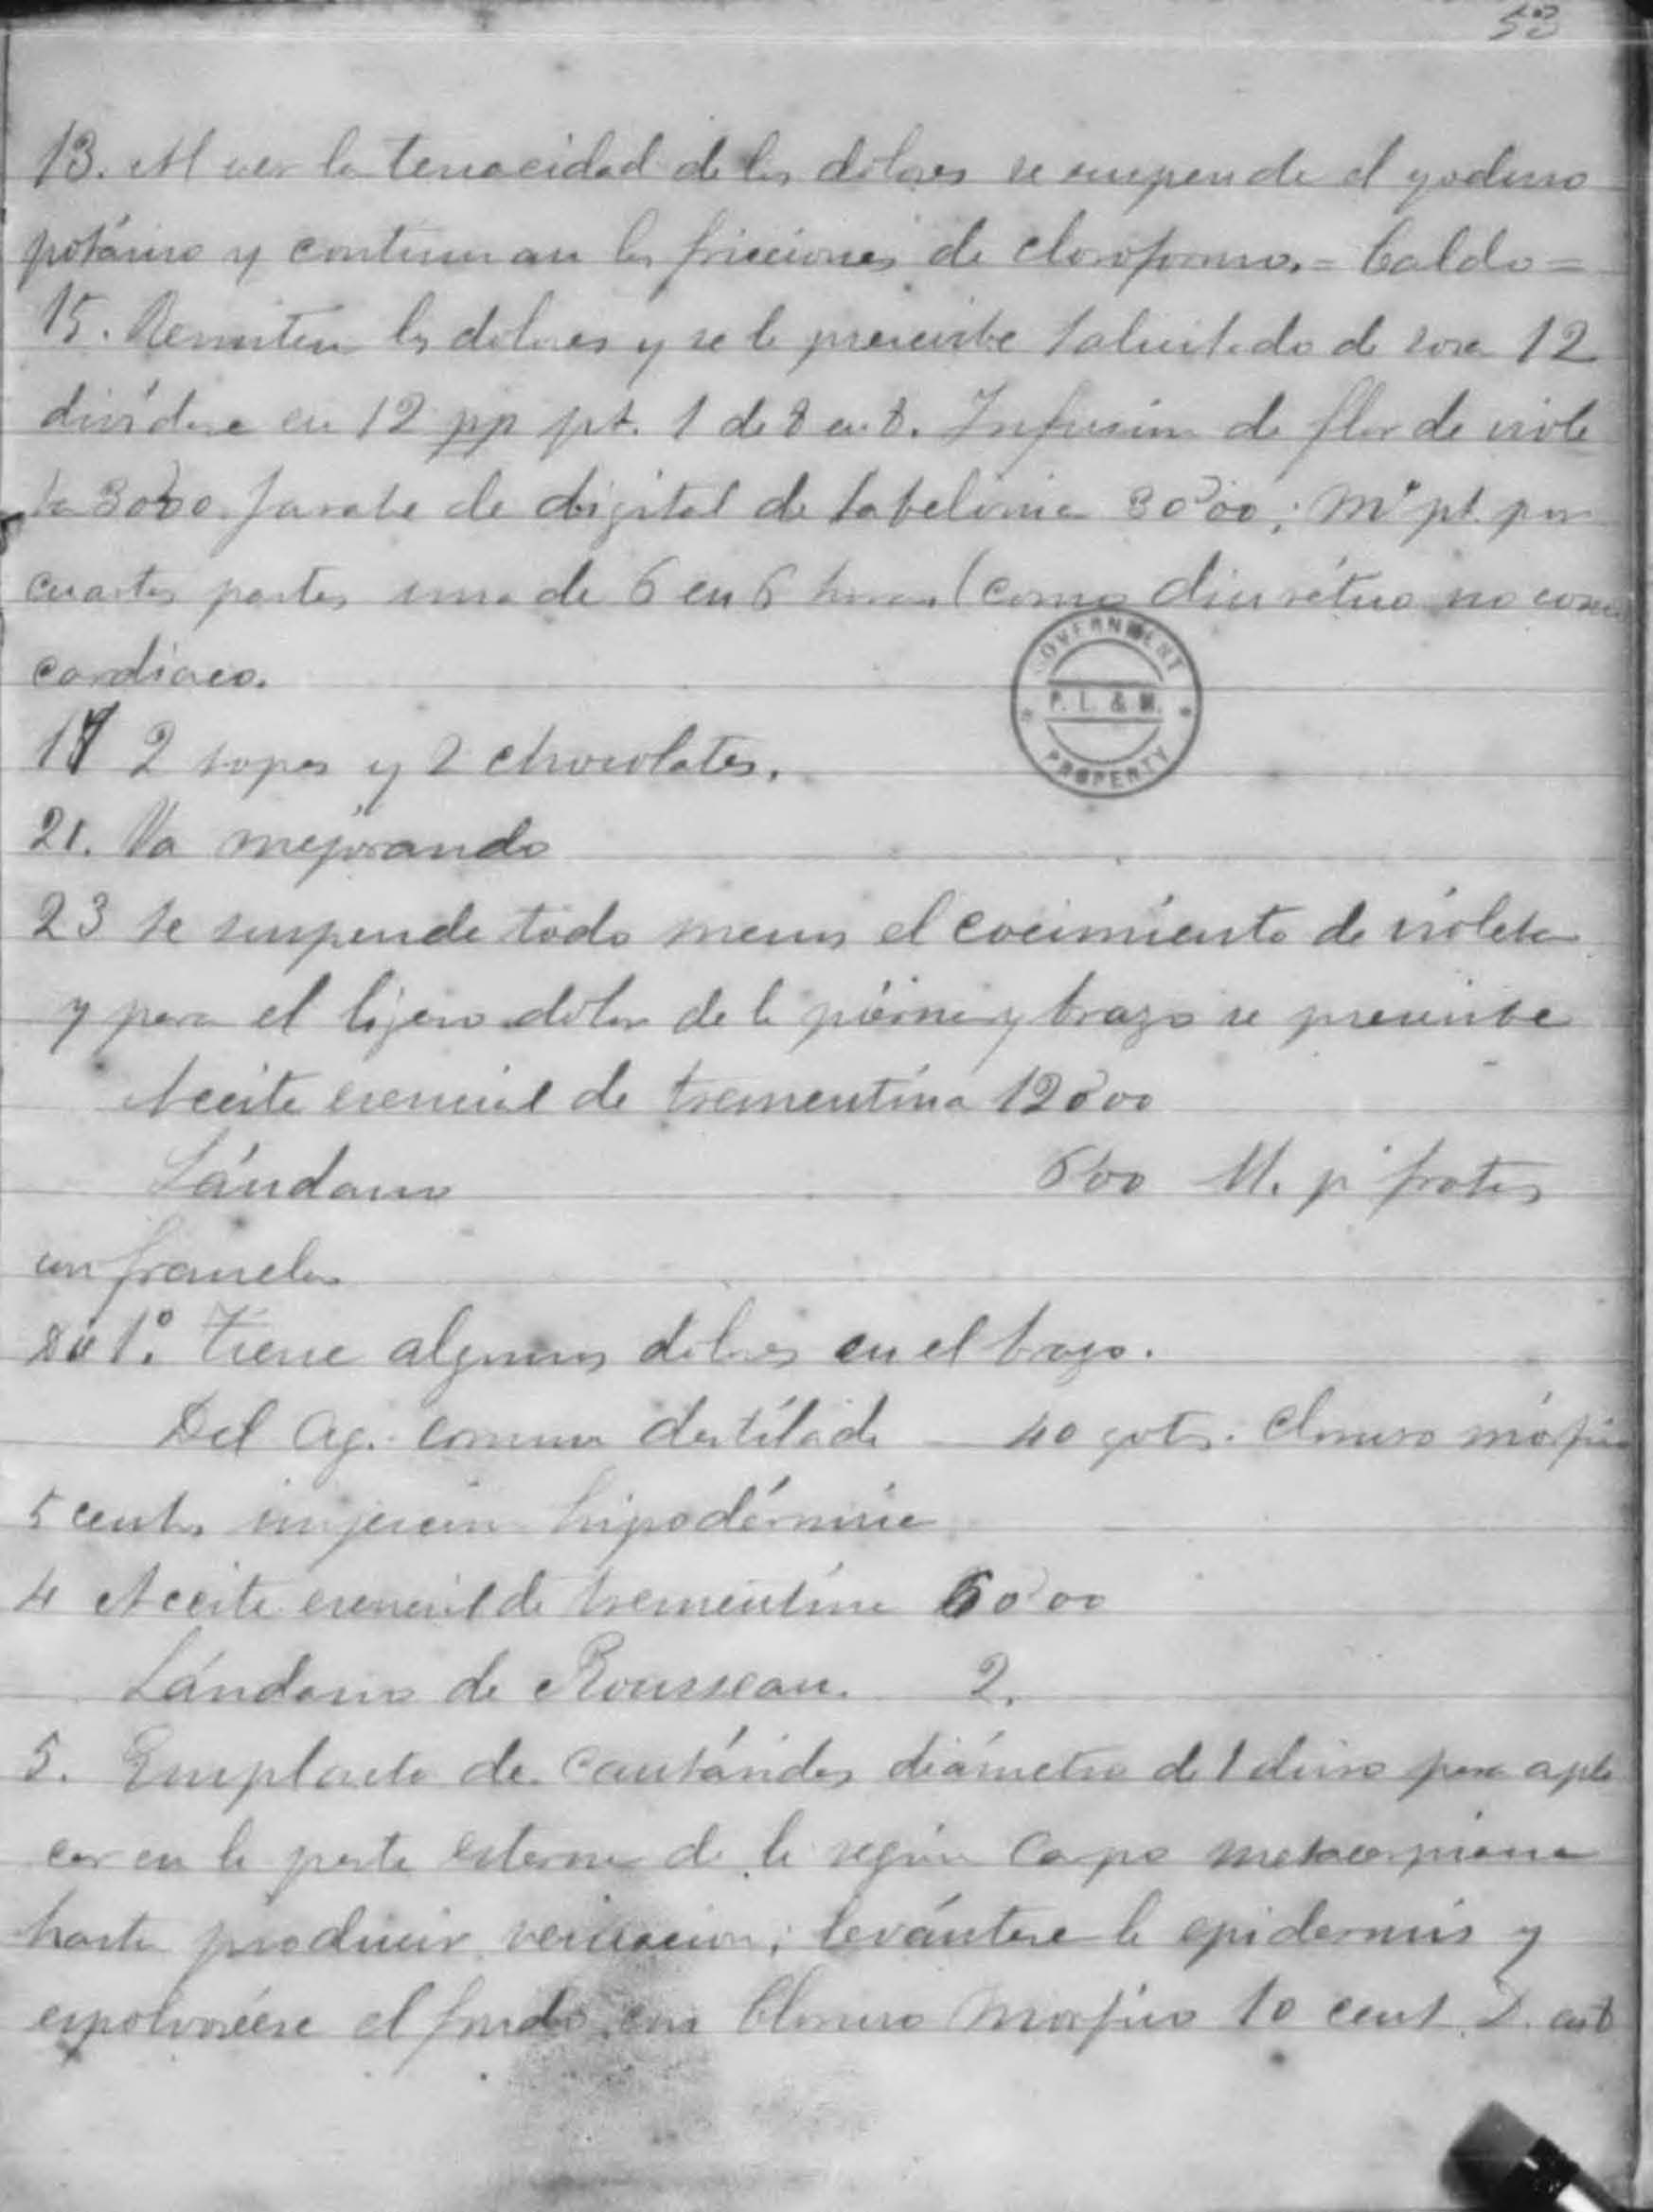 53
13. Al ver la tenacidad de los dolores se suspende el yoduro
potásico y continuan las fricciones de cloroformo. = Caldo =
15. Remiten los dolores y se le prescribe salicilado de sosa 12
dividase en 12 pp pt. 1 de 8 en 8. Infusion de flor de viole
ta 300'00 Jarabe de digital de Labelonie 30'00; M° pt. por
cuartas partes una de 6 en 6 horas (como diurético no como
cardiaco.
2 sopas y 2 chocolates.
21. Va mejorando
23 Se suspende todo menos el cocimiento de violeta
y para el lijero dolor de la pierna y brazo se prescribe
Aceite esencial de trementina 120'00
Láudano 6'00 M. p° frotes
con franela
Dia 1.° Tiene algunos dolores en el brazo.
Del Ag. comun destilada 40 gots. Cloruro mórfico
5 cents. injeccion hipodérmica
4 Aceite esencial de trementina 60'00
Láudano de Rousseau. 2.
5. Emplasto de Cantáridas diámetro de 1 duro para apli
car en la parte esterna de la región Carpo metacarpiana
hasta producir vesicacion; levántese la epidermis y
espolvoréese el fondo con Cloruro Morfico 10 cent.
GOVERNMENT
P. L. & M.
PROPERTY